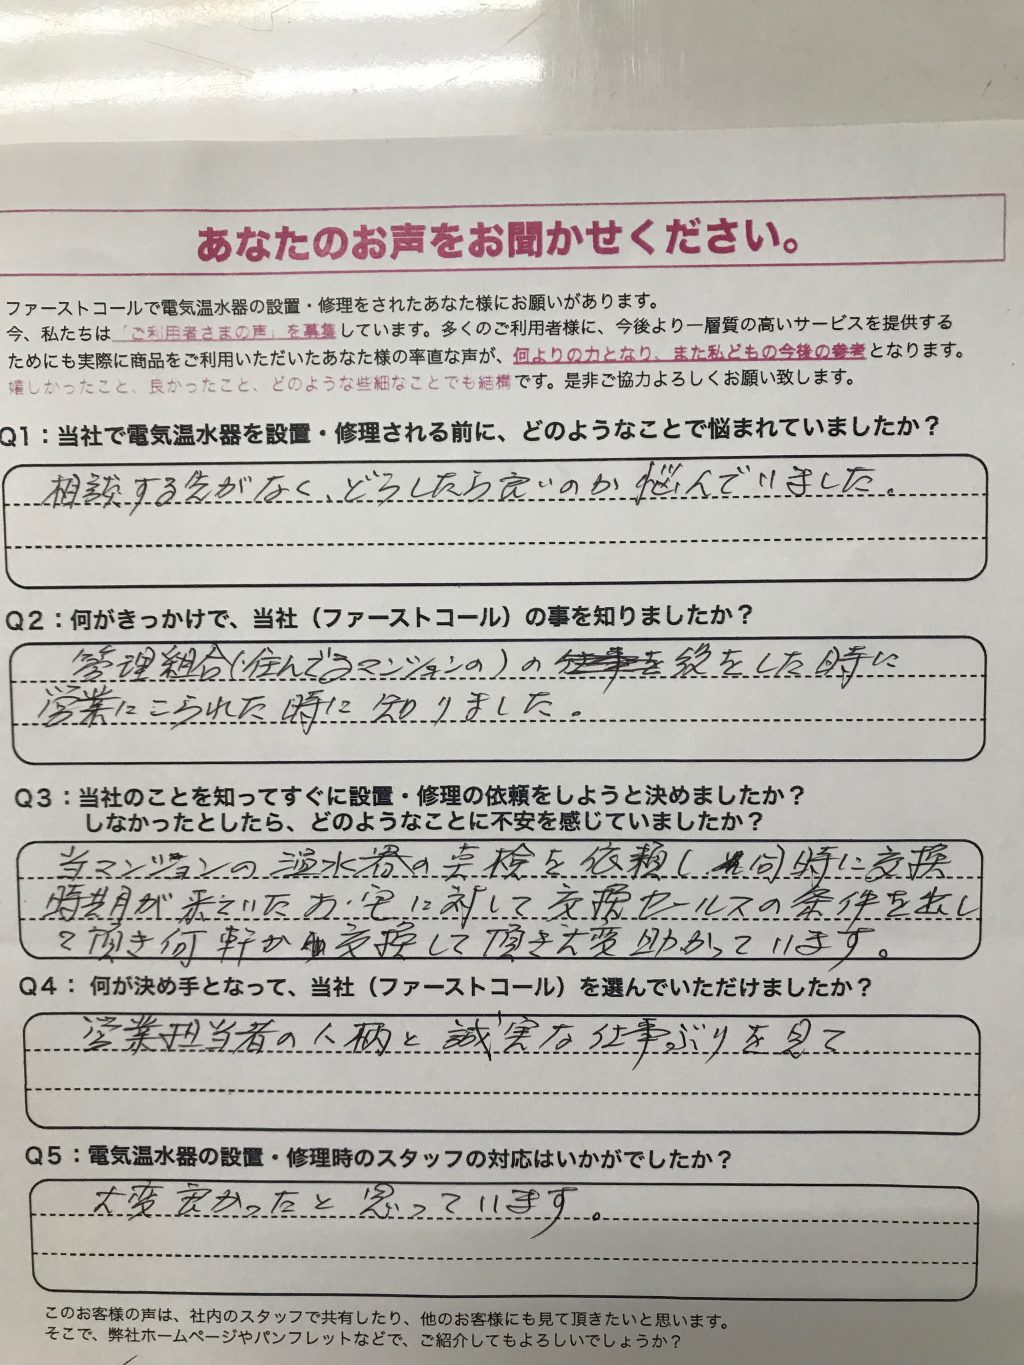 あなたのお声をお聞かせください。
ファーストコールで電気温水器の設置・修理をされたあなた様にお願いがあります。
今、私たちは「ご利用者さまの声」を募集しています。多くのご利用者様に、今後より一層質の高いサービスを提供する
ためにも実際に商品をご利用いただいたあなた様の率直な声が、何よりの力となり、また私どもの今後の参考となります。
嬉しかったこと、良かったこと、どのような些細なことでも結構です。是非ご協力よろしくお願い致します。
Q1：当社で電気温水器を設置・修理される前に、どのようなことで悩まれていましたか？
相談する先がなく、どうしたら良いのか悩んでいました。
Q2：何がきっかけで、当社（ファーストコール）の事を知りましたか？
管理組合(住んでるマンションの)の仕事を役をした時に
営業にこられた時に知りました。
Q3：当社のことを知ってすぐに設置・修理の依頼をしようと決めましたか？
しなかったとしたら、どのようなことに不安を感じていましたか？
当マンションの温水器の点検を依頼し同時に交換
時期が来ていたお宅に対して交換セールスの条件を出し
て頂き何軒か交換して頂き大変助かっています。
Q4： 何が決め手となって、当社（ファーストコール）を選んでいただけましたか？
営業担当者の人柄と誠実な仕事ぶりを見て
Q5：電気温水器の設置・修理時のスタッフの対応はいかがでしたか？
大変良かったと思っています。
このお客様の声は、社内のスタッフで共有したり、他のお客様にも見て頂きたいと思います。
そこで、弊社ホームページやパンフレットなどで、ご紹介してもよろしいでしょうか？